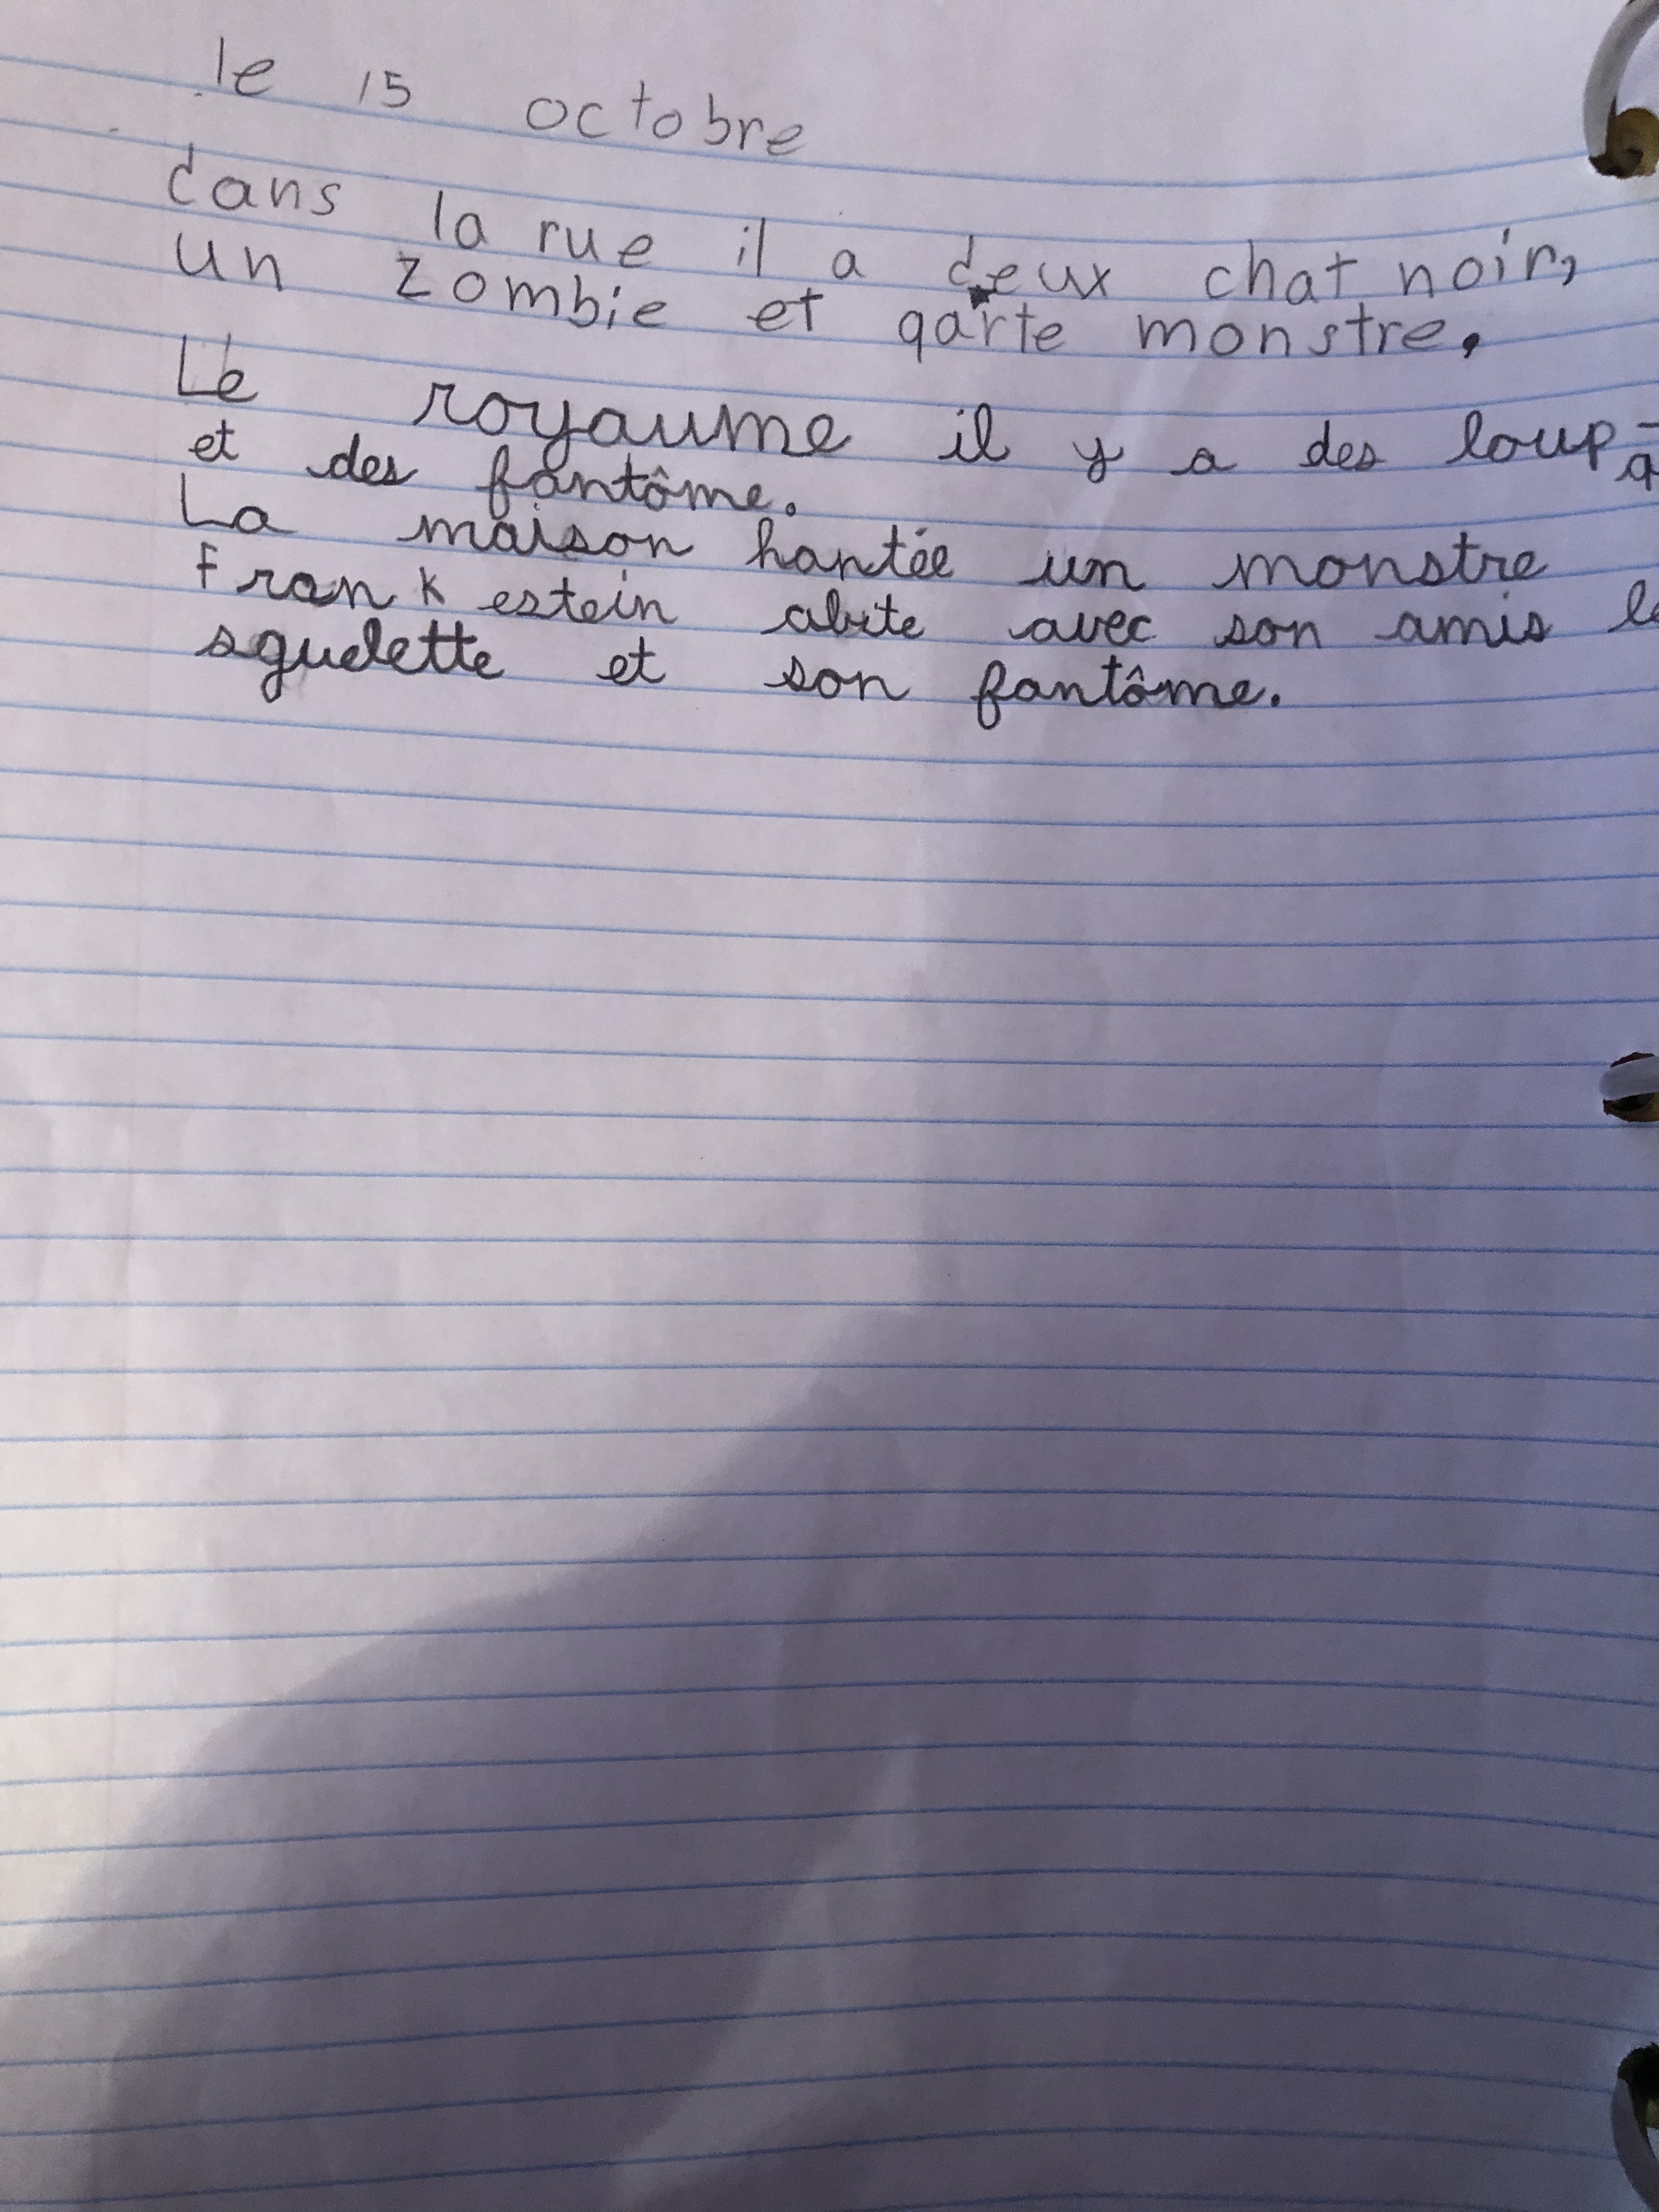 le 15 octobre
dans la rue il a deux chat noir,
un zombie et qarte monstre.
Le royaume il y a des loup-
et des fantôme.
La maison hantée un monstre
Frankestein abite avec son amis le
sguelette et son fantôme.